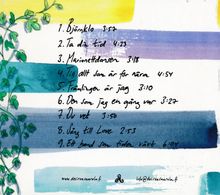 1. Björnklo 3:57
2. Ta din tid 4:23
3. Marionettdansen 3:18
4. Till allt som är för nära 4:54
5. Främlingen är jag 3:10
6. Den som jag en gång var 3:27
7. Du vet 3:50
8. Sång till Love 2:53
9. Ett band som tiden växt 6:04